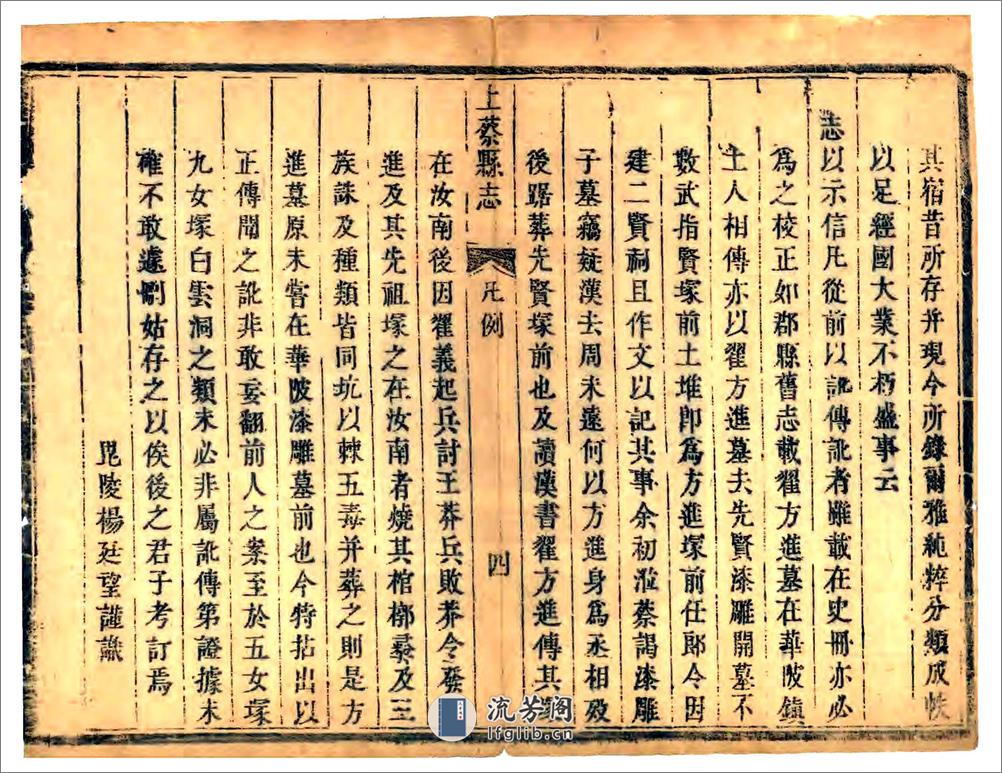 其宿昔所存并現今所錄爾雅純粹分類成帙
以足經國大業不朽盛事云
志以示信凡從前以訛傳訛者雖載在史冊亦必
為之校正如郡縣舊志載翟方進墓在華陂鎮
土人相傳亦以翟方進墓去先賢漆雕開墓不
數武指賢塚前土堆即為方進塚前任郎令因
建二賢祠且作文以記其事余初涖蔡謁漆雕
子墓竊疑漢去周末遠何以方進身為丞相歿
後踞葬先賢塚前也及讀漢書翟方進傳其
上蔡縣志 凡例 四
在汝南後因翟義起兵討王莽兵敗莽令發
進及其先祖塚之在汝南者燒其棺槨夷及三
族誅及種類皆同坑以棘五毒并葬之則是方
進墓原未嘗在華陂漆雕墓前也今特拈出以
正傳聞之訛非敢妄翻前人之案至於五女塚
九女塚白雲洞之類未必非屬訛傳第證據未
確不敢遽刪姑存之以俟後之君子考訂焉
毘陵楊廷望謹識
流芳閣
lfglib.cn